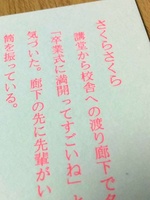 さくらさくら
講堂から校舎への渡り廊下で
「卒業式に満開ってすごいね」と
気づいた。廊下の先に先輩がい
飾を振っている。